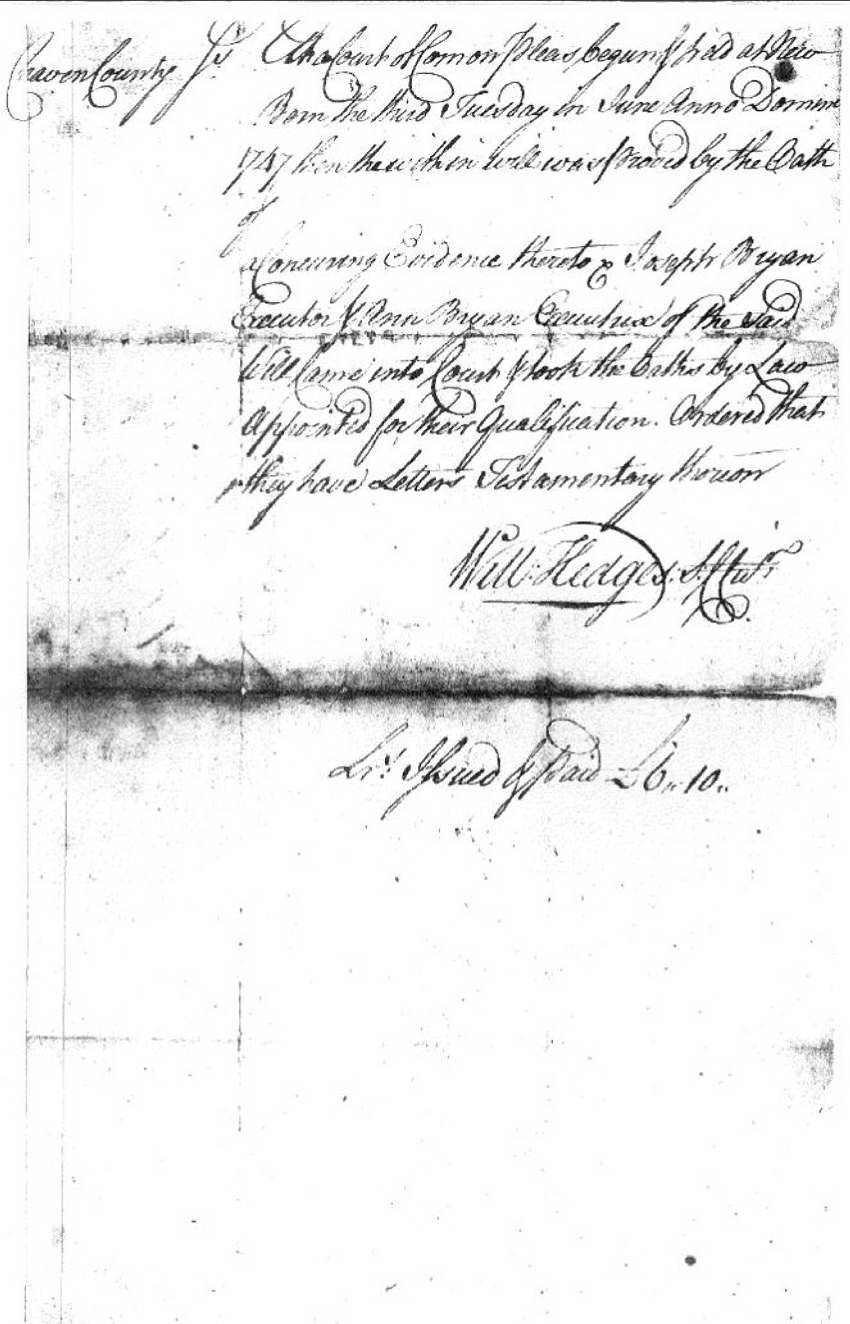 Craven County Ss At a Court of Comon Pleas begun & held at New
Bern the third Tuesday in June Anno Domini
1747 then the within will was proved by the Oath
of
a Concuring Evidence thereto & Joseph Bryan
Executor & Ann Bryan Executrix of the said
Will Came into Court & took the Oaths by Law
Appointed for their Qualification. Ordered that
they have Letters Testamentary thereon
Will: Hedges.
Lrs: Issued & Paid £6,,10,,